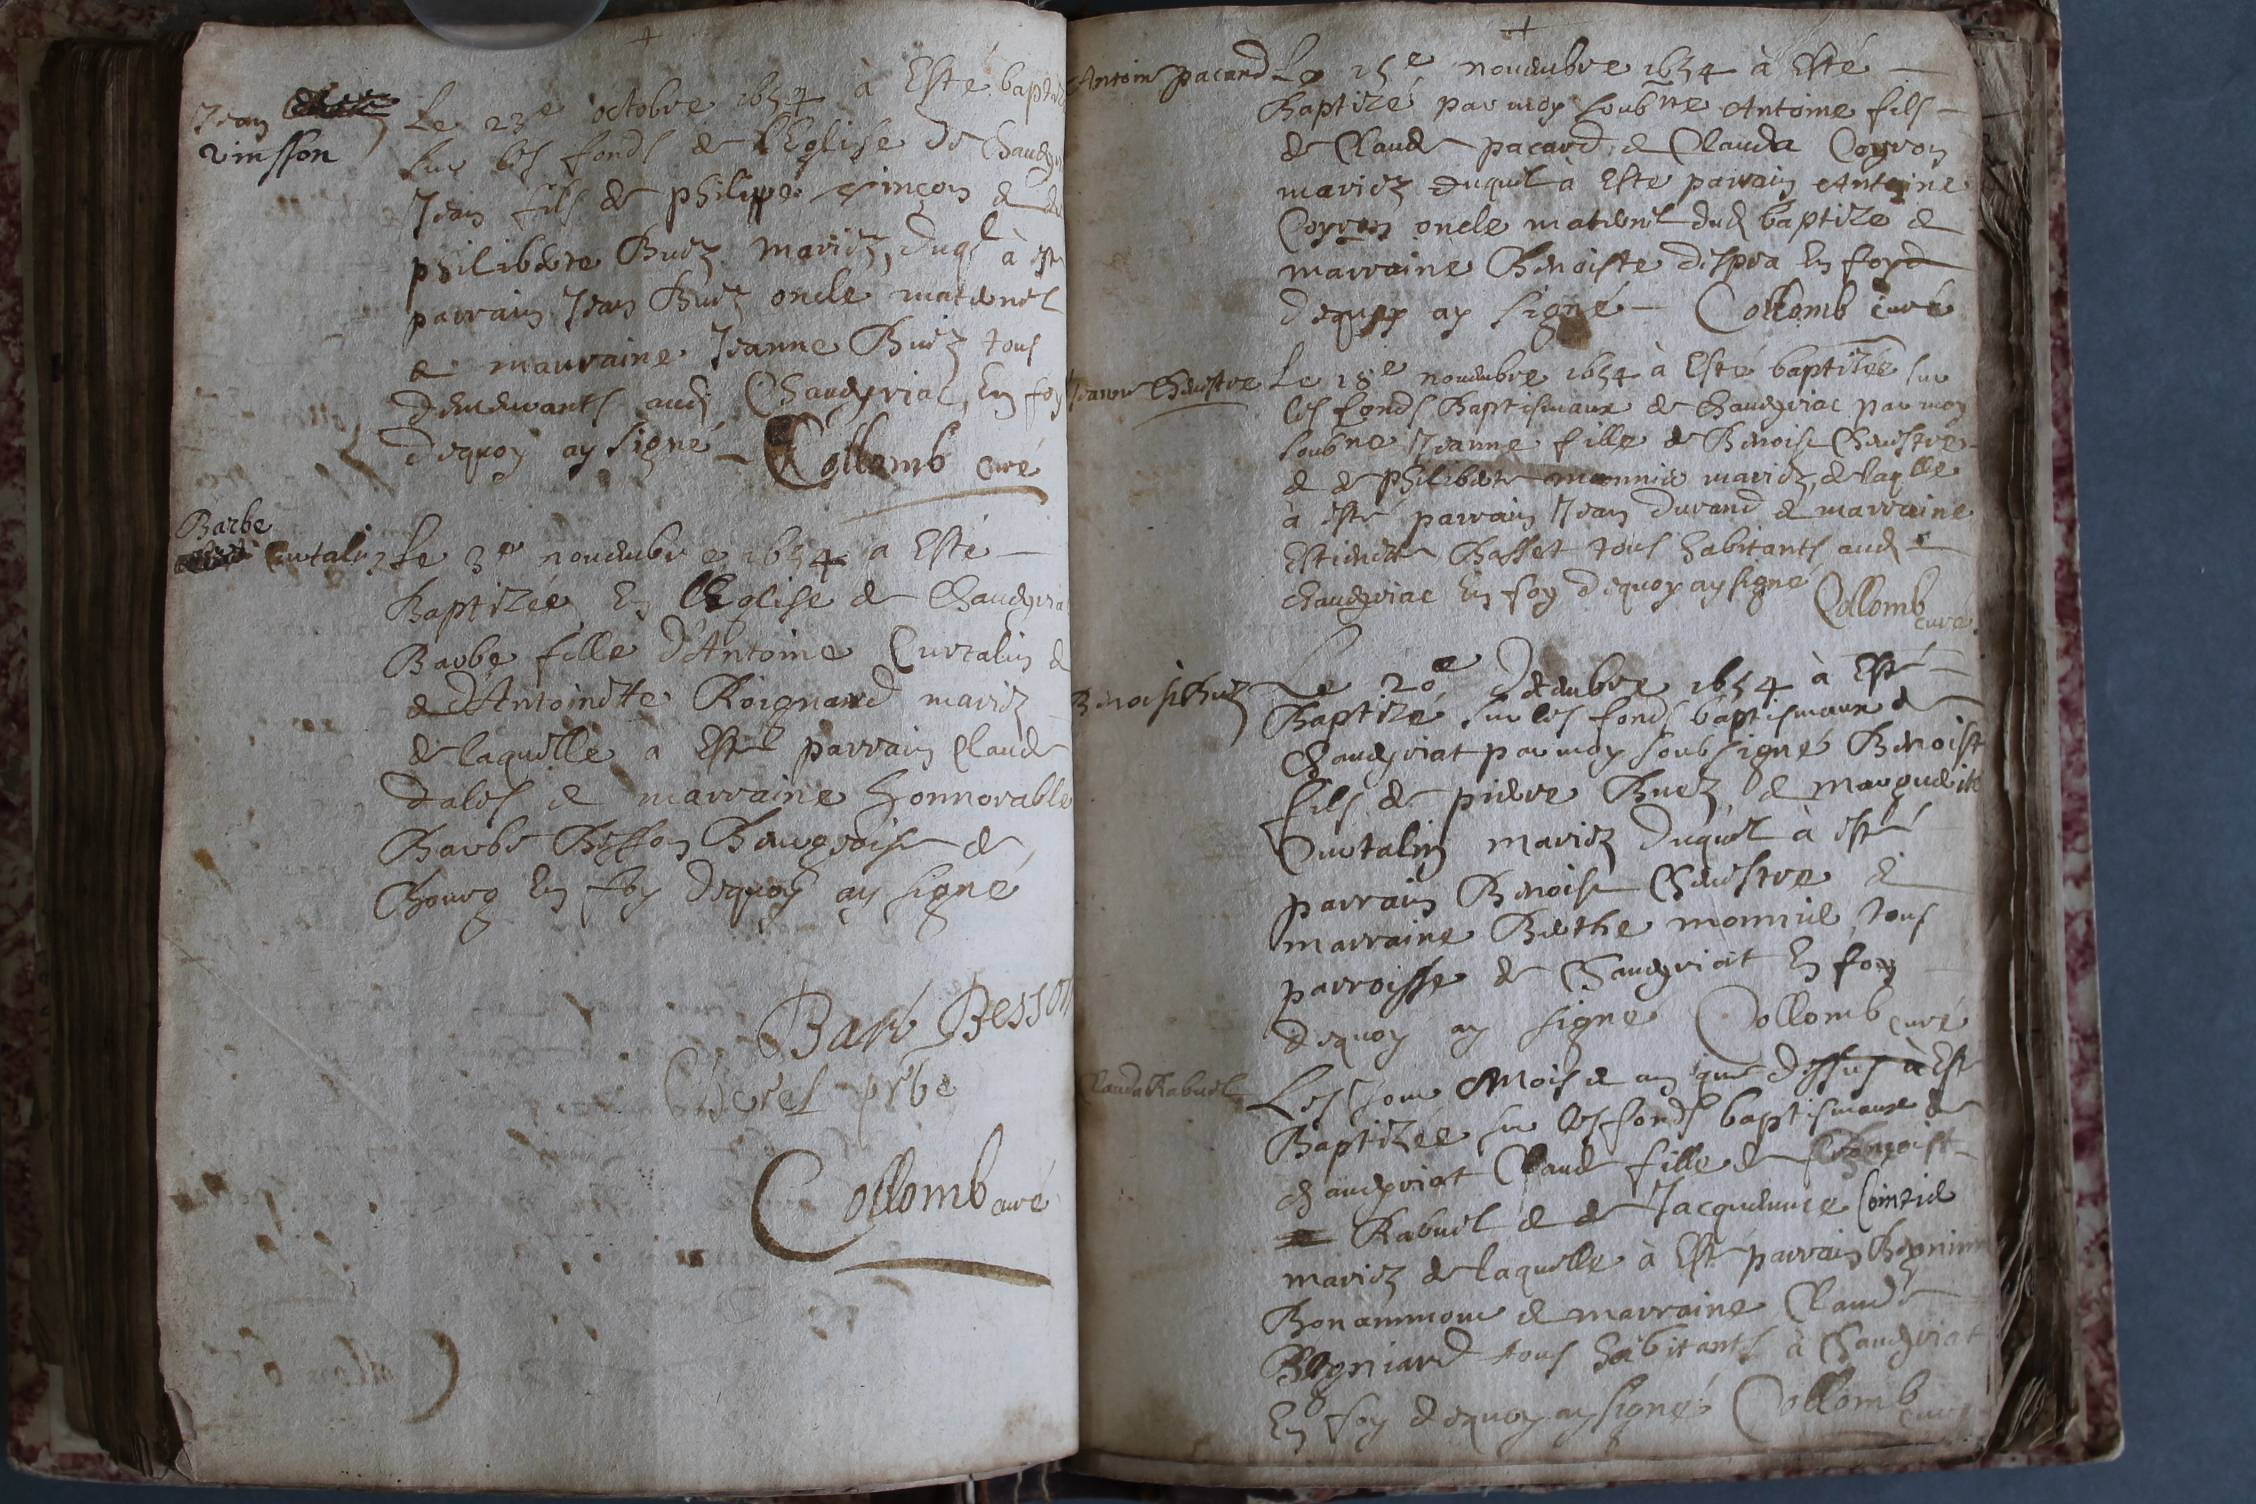 Jean
vinsson
Le 23e octobre 1654 à Esté baptizé
sur les fonds de l'Eglise de Chaveyria
Jean fils de philippe vinçon & de
philiberte Buez mariez, duql à esté
parrain Jean Buez oncle maternel
& maurraine Jeanne Buez tous
demeurants audi Chaveyriac, En foy
dequoy ay signé Collomb curé
Barbe
Curtalin
Le 3e novembre 1654 a Esté
Baptizée En l'Eglise de Chaveyria
Barbe fille d'Antoine Curtalin &
d'Antoinette Roignard mariez
de laquelle a Esté parrain Claude
dales & marraine honnorable
Barbe Besson Bourgeoise de
Bourg En foy dequoy ay signé
Barbe Besson
Collomb curé
Antoine pacard
Le 15e novembre 1654 à Esté
Baptizé par moy soubne Antoine fils
de Claude pacard, & Clauda Coyron
mariez duquel à Esté parrain Antoine
Coyron oncle maternel dud baptizé &
marraine Benoiste despra En foy
dequoy ay signé Collomb curé
Jeanne Chenistre
Le 18e novembre 1654 à Esté baptizée sur
les fonds Baptismaux de chaveyriac par moy
soubne Jeanne fille de Benoist Chenistre
& de philiberte monnier mariez, de laqlle
à esté parrain Jean durand & marraine
Estienette Basset tous habitants aud
chaveyriac En foy dequoy ay signé Collomb
curé
Benoist Buez
Le 20e decembre 1654 à Esté
Baptizé sur les fonds baptismaux de
Chaveyriat par moy soubsigné Benoist
fils de pierre Buez & marguerite
Curtalin mariez duquel à esté
parrain Benoist Chenistre &
marraine Berthe monnier, tous
parroisse de Chaveyriat En foy
dequoy ay signé Collomb curé
Clauda Rabuel
Les jour Mois & an que dessus à Esté
Baptizée sur les fonds baptismaux de
chaveyriat Claude fille de
Rabuel & de Jacquemme Cointie
mariez de laquelle à Esté parrain
Bonammour & marraine Claude
Rogniard tous habitants à Chaveyriat
En foy dequoy ay signé Collomb
curé